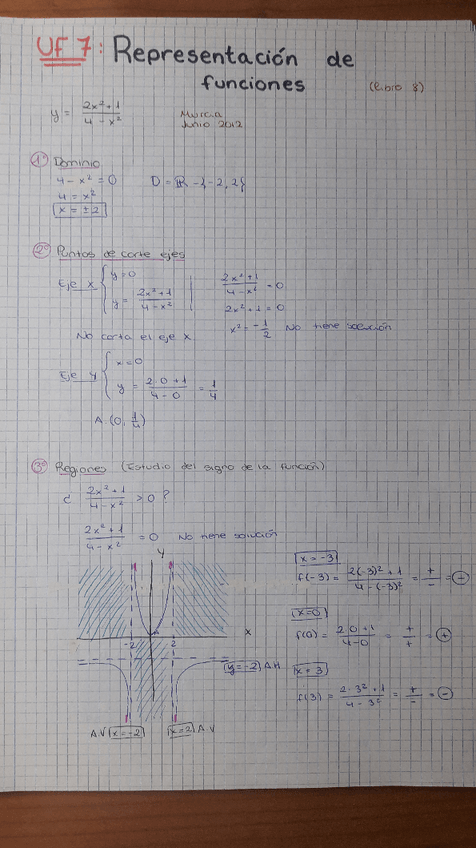 UF 7: Representación de
funciones (Libro 8)
y = (2x²+1)/(4-x²) Murcia
Junio 2012
1º Dominio
4-x²=0 D = ℝ -{-2,2}
4 = x²
x = ±2
2º Puntos de corte ejes
Eje x { y=0 (2x²+1)/(4-x²) = 0
y = (2x²+1)/(4-x²) 2x²+1 = 0
x² = -1/2 No tiene solución
No corta el eje x
Eje y { x=0
y = (2·0+1)/(4-0) = 1/4
A.(0, 1/4)
3º Regiones (Estudio del signo de la función)
¿ (2x²+1)/(4-x²) > 0 ?
(2x²+1)/(4-x²) = 0 No tiene solución
y
x = -3
f(-3) = (2(-3)²+1)/(4-(-3)²) = +/- = -
x=0
f(0) = (2·0+1)/(4-0) = +/+ = +
-2 2 x
y=-2 A.H
x = 3
f(3) = (2·3²+1)/(4-3²) = +/- = -
A.V x=-2 x=2 A.V